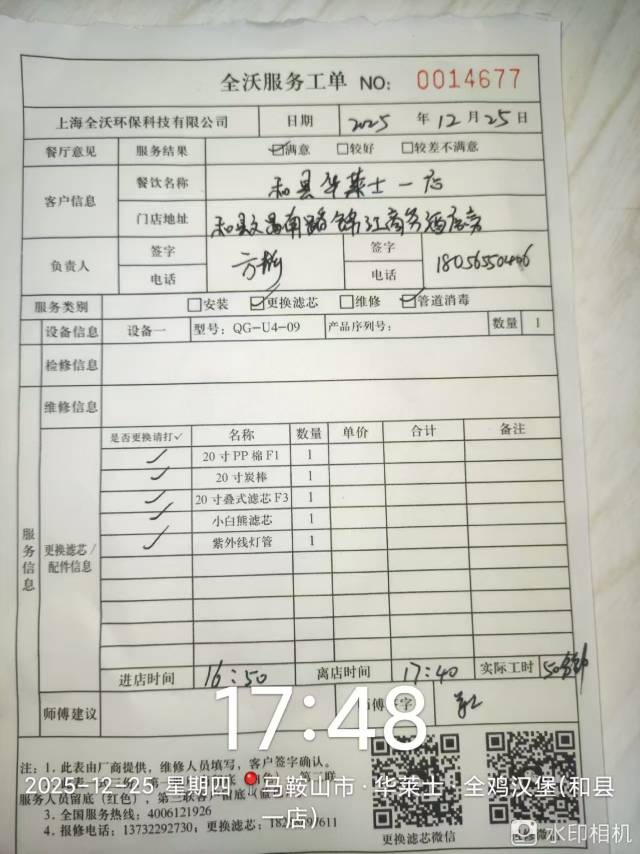 全沃服务工单 NO: 0014677
上海全沃环保科技有限公司 日期 2025 年 12 月 25 日
餐厅意见 服务结果 ☑满意 □较好 □较差不满意
客户信息 餐饮名称 和县华莱士一店
门店地址 和县文昌南路锦江商务酒店旁
负责人 签字 签字
电话 电话 18056550446
服务类别 □安装 ☑更换滤芯 □维修 ☑管道消毒
设备信息 设备一 型号: QG-U4-09 产品序列号: 数量 1
检修信息
维修信息
服务信息
更换滤芯/配件信息
是否更换请打✓ 名称 数量 单价 合计 备注
✓ 20寸PP棉F1 1
✓ 20寸炭棒 1
✓ 20寸叠式滤芯F3 1
✓ 小白熊滤芯 1
✓ 紫外线灯管 1
进店时间 16:50 离店时间 17:40 实际工时 50分钟
师傅建议 师傅签字
17:48
注: 1. 此表由厂商提供, 维修人员填写, 客户签字确认。
2025-12-25 星期四 马鞍山市·华莱士·全鸡汉堡(和县一店)
服务人员留底(红色), 第三联客户留底
3. 全国服务热线: 4006121926
4. 报修电话: 13732292730, 更换滤芯:
更换滤芯微信
水印相机